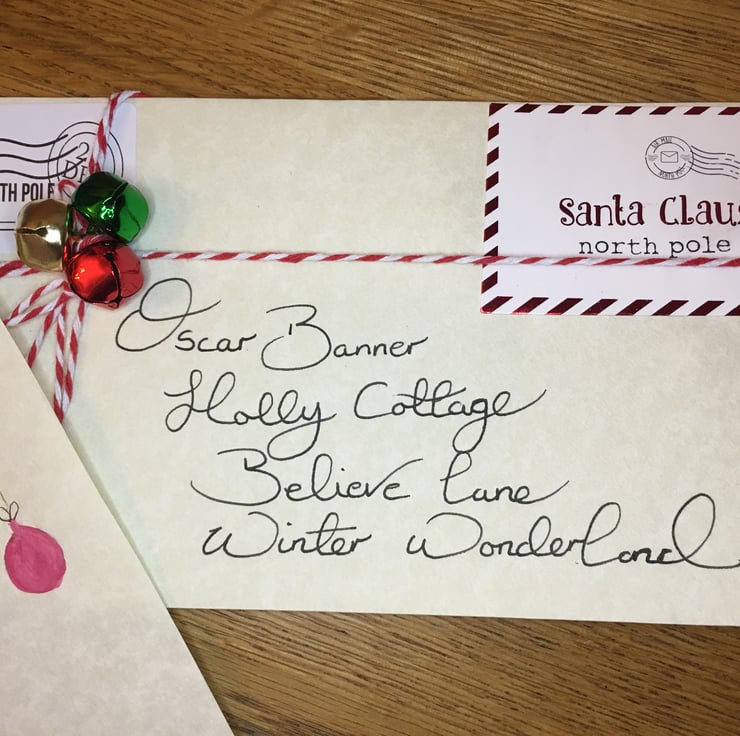 TH POLE
AIR MAIL
NORTH POLE
Santa Clau
north pole
Oscar Banner
Holly Cottage
Believe Lane
Winter Wonderland